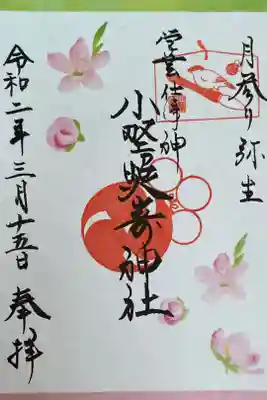 月参り 弥生
学芸 仕事神
小野照崎神社
令和二年三月十五日 奉拝